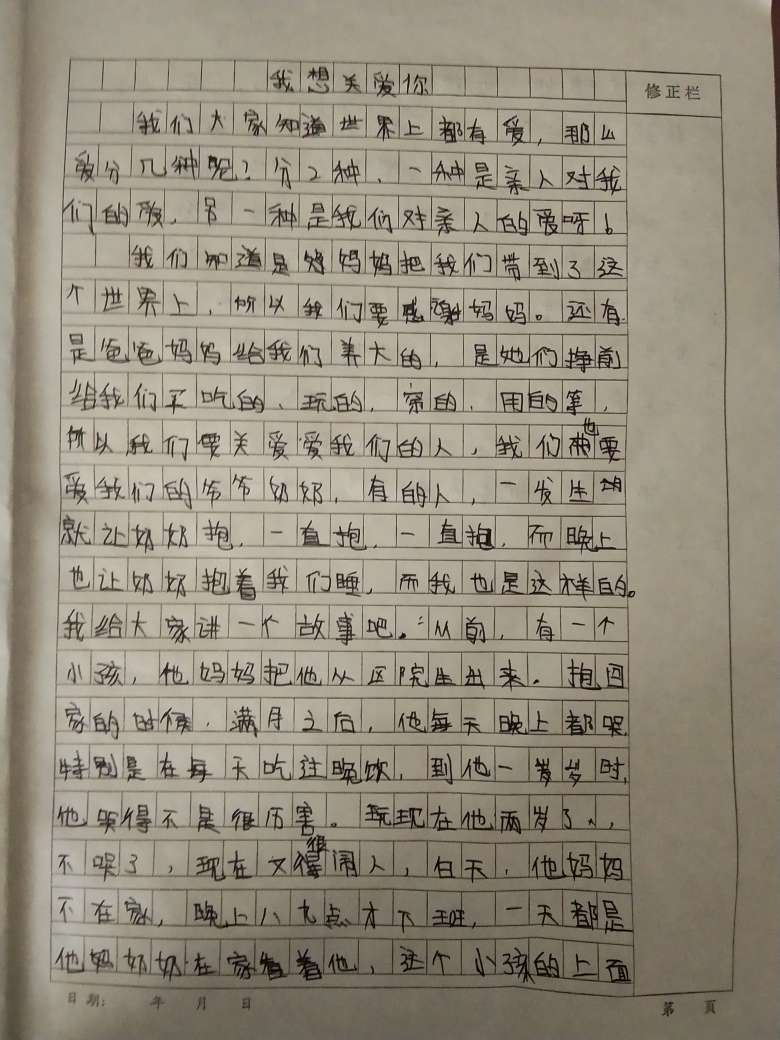 我想关爱你
修正栏
我们大家知道世界上都有爱，那么
爱分几种呢？分2种，一种是亲人对我
们的爱，另一种是我们对亲人的爱呀！
我们知道是妈妈把我们带到了这
个世界上，所以我们要感谢妈妈。还有
是爸爸妈妈给我们养大的，是她们挣前
给我们买吃的、玩的，穿的，用的等，
所以我们要关爱爱我们的人，我们也要
爱我们的爷爷奶奶，有的人，一发生
就让奶奶抱，一直抱，一直抱，而晚上
也让奶奶抱着我们睡，而我也是这样的。
我给大家讲一个故事吧。从前，有一个
小孩，他妈妈把他从医院生出来。抱回
家的时候，满月之后，他每天晚上都哭
特别是在每天吃过晚饮，到他一岁时，
他哭得不是很厉害。现在他两岁了，
不哭了，现在又很闹人，白天，他妈妈
不在家，晚上八九点才下班，一天都是
他奶奶在家看着他，这个小孩的上面
日期： 年 月 日
第 頁